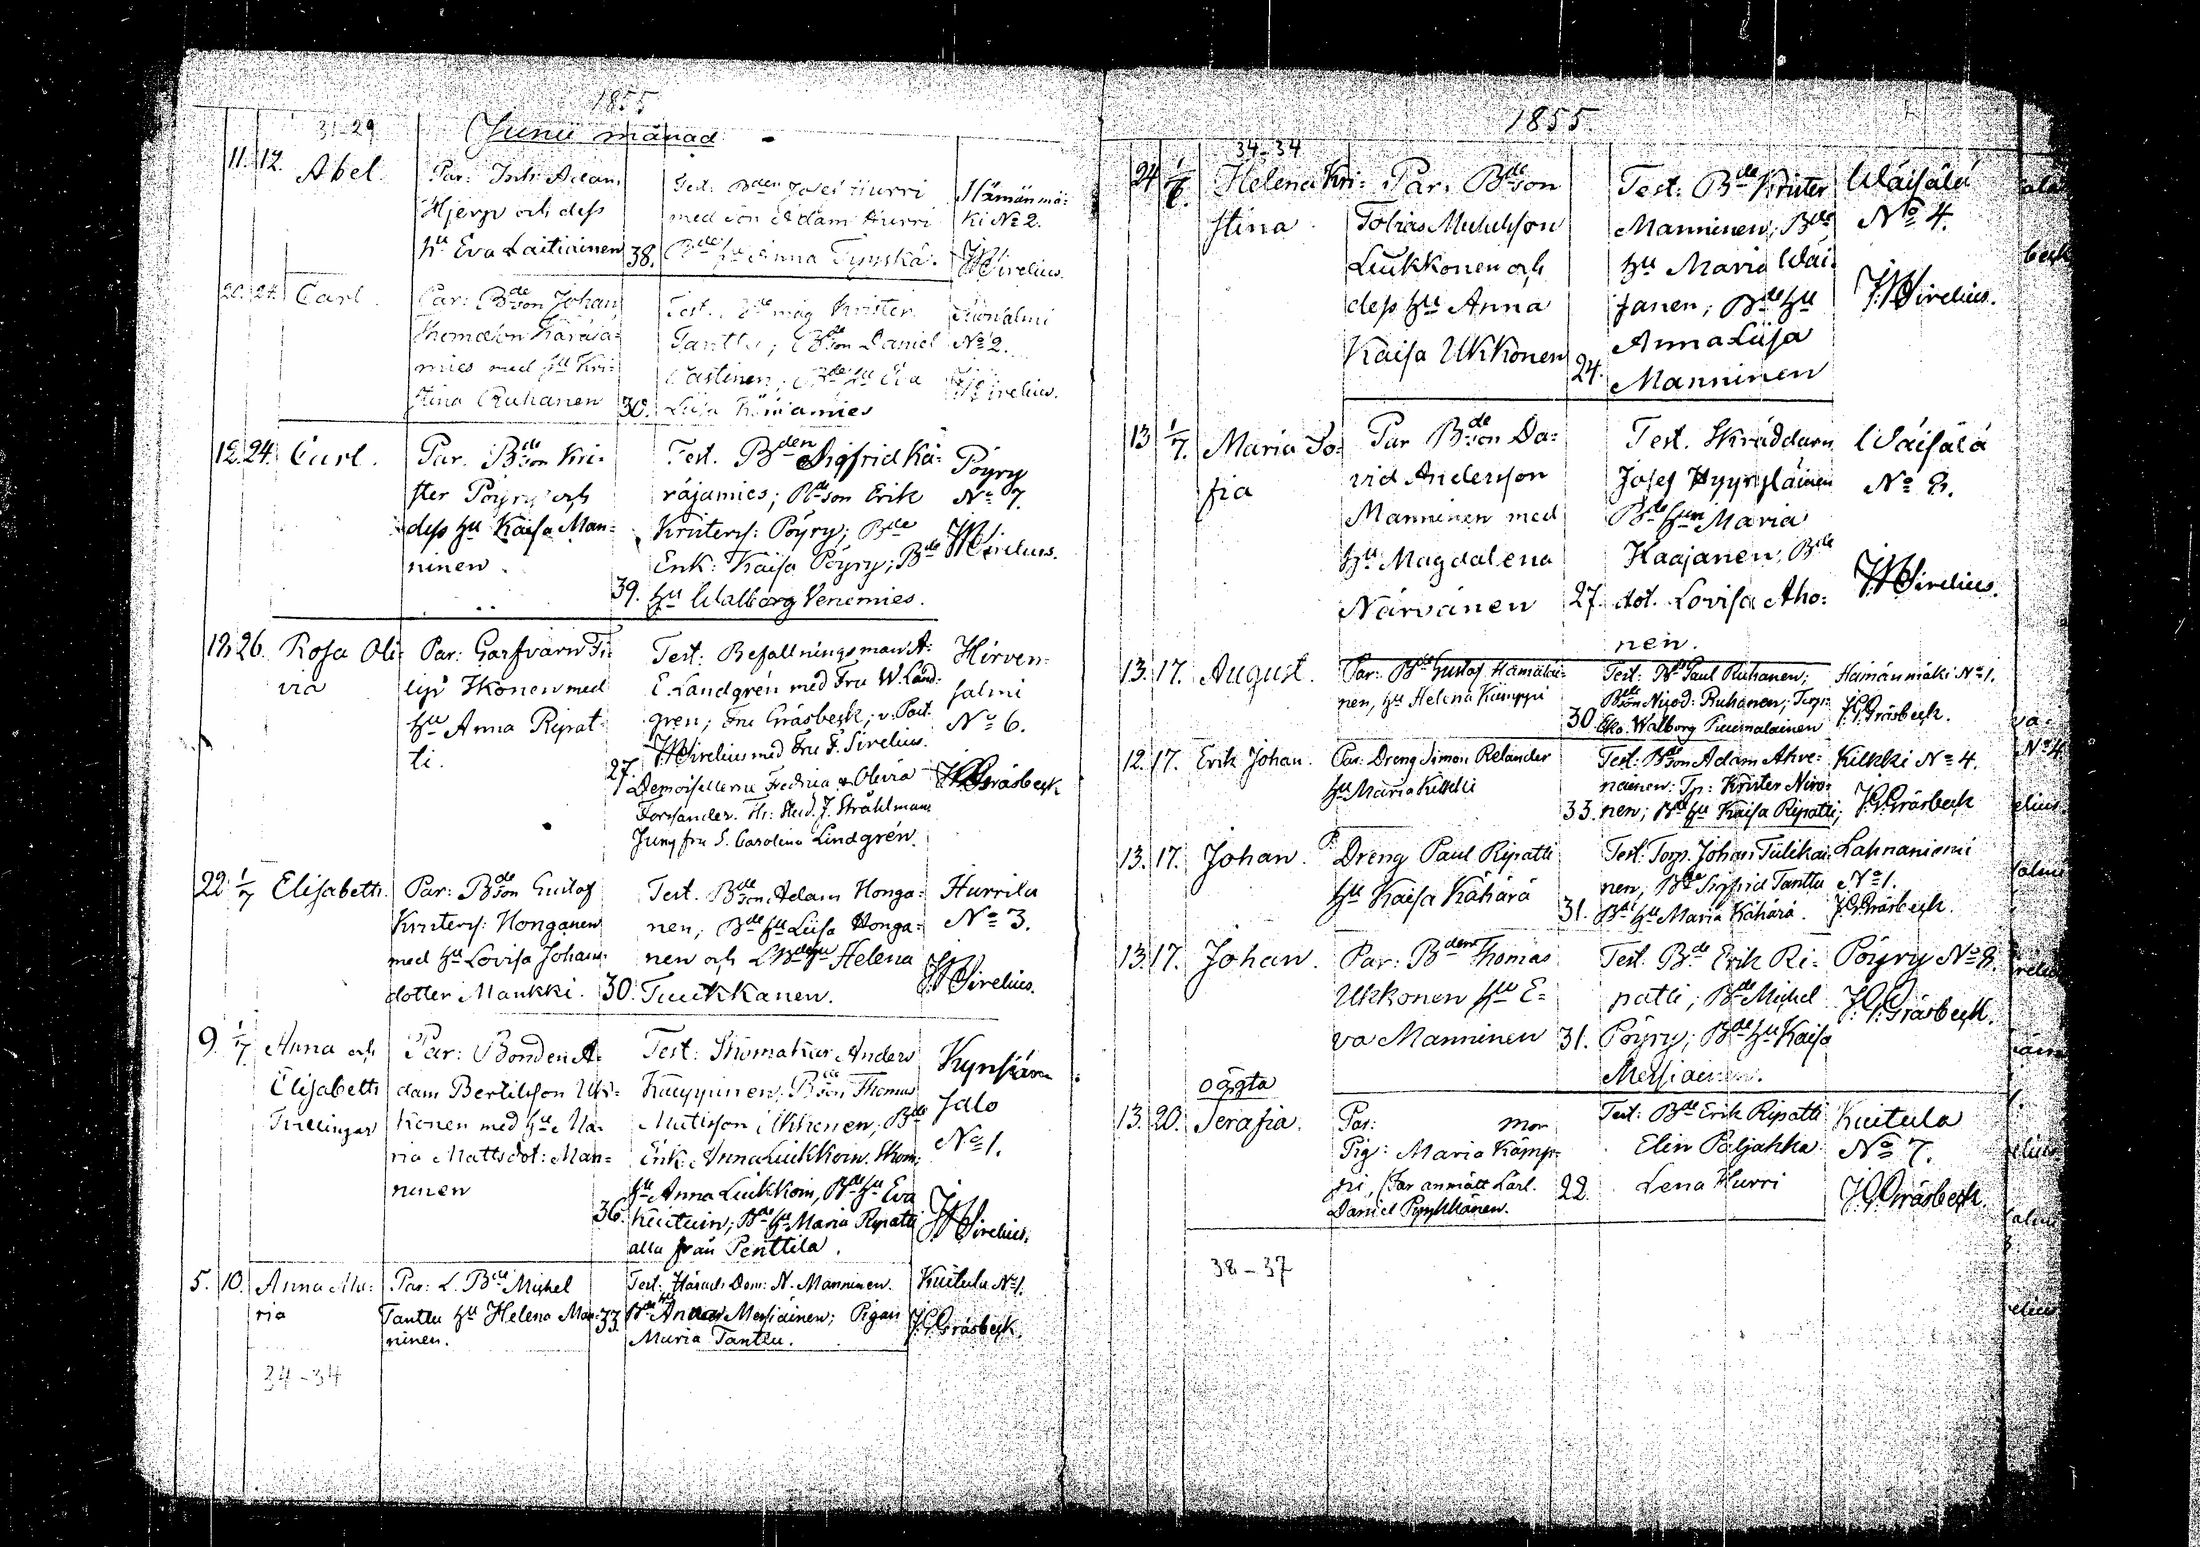 1855
31-29
Junii månad
11. 12. Abel.
Par: Inh: Adam
Hjerpe och dess
hu Eva Laitiainen 38.
Test: Bden Josef Hurri
med son Adam Hurri
Bde hu Anna Tynskä.
Hämänmä-
ki No 2.
JWSirelius.
24. Carl.
Par: Bdeson Johan
Thomasson Karja-
mies med hu Kri-
stina Ruhanen 30.
Test. måg Krister
Tanttu; Bdeson Daniel
Bde hu Eva
Liisa
No 2.
JWSirelius.
12. 24. Carl.
Par. Bdeson Kri-
ster Pöyry och
dess hu Kaisa Man-
ninen.
39.
Test. Bden Sigfrid Kä-
räjamies; Bdeson Erik
Kristers: Pöyry; Bde
Enk: Kaisa Pöyry; Bde
hu Walborg Venemies.
Pöyry
No 7.
JWSirelius.
19. 26. Rosa Oli-
via
Par: Garfvarn Fi-
lip Ikonen med
hu Anna Ripat-
ti.
27.
Test: Befallningsman A.
E. Landgrén med Fru W. Land-
grén; Fru Gråsbeck; v. Past.
JWSirelius med Fru F. Sirelius.
Demoisellerne Fredrica & Olivia
Forssander. Hr: Stud. J. Stråhlman
Jungfru S. Carolina Lindgrén.
Hirven-
salmi
No 6.
JGGråsbeck
22. 1/7 Elisabeth.
Par: Bdeson Gustaf
Kristers: Honganen
med hu Lovisa Johans-
dotter Maukki. 30.
Test. Bdeson Adam Honga-
nen; Bde hu Liisa Honga-
nen och Bde hu Helena
Tuukkanen.
Hurrila
No 3.
JWSirelius.
9. 1/7 Anna och
Elisabeth
Tvillingar
Par: Bonden A-
dam Bertilsson Uk-
konen med hu Ma-
ria Mattsdot: Man-
ninen
36.
Test: Skomakar Anders
Kauppinen; Bdeson Thomas
Matisson Ukkonen; Bde
Enk: Anna Liukkoin. Skom:
hu Anna Liukkoin, Bde hu Eva
Kuituin; Bde hu Maria Ripatti
alla från Penttilä.
Kynsiän-
salo
No 1.
JWSirelius.
5. 10. Anna Ma-
ria
Par: L. Bde Michel
Tanttu hu Helena Man-
ninen. 33.
Test: Härads Dom: N. Manninen.
Messiäinen; Pigan
Maria Tanttu.
Kuitula No 1.
JGGråsbeck.
34-34
1855.
34-34
24 1/7. Helena Kri-
stina
Par. Bdeson
Tobias Michelsson
Liukkonen och
dess hu Anna
Kaisa Ukkonen 24.
Test: Bde Krister
Manninen; Bde
hu Maria Wäi-
sänen; Bde hu
Anna Liisa
Manninen
Wäisälä
No 4.
JWSirelius.
13 1/7. Maria So-
fia
Par Bdeson Da-
vid Andersson
Manninen med
hu Magdalena
Närvänen 27.
Test. Skräddarn
Josef Hyyryläinen
Bde hun Maria
Haajanen, Bde
dot. Lovisa Aho-
nen.
Wäisälä
No 8.
JWSirelius.
13. 17. August.
Par: Bde Gustaf Hämäläi-
nen, hu Helena Kämppi
30.
Test: Bde Paul Ruhanen;
Bdeson Nicod: Ruhanen; Torp:
Eko. Walborg Tuumalainen
Hämänmäki No 1.
JGGråsbeck.
12. 17. Erik Johan.
Par. Dreng Simon Relander
hu Maria Kilkki
33.
Test: Bdeson Adam Ahve-
nainen: Tp: Krister Niro-
nen; Bde hu Kaisa Ripatti;
Kilkki No 4.
JGGråsbeck
13. 17. Johan.
P. Dreng Paul Ripatti
hu Kaisa Kähärä
31.
Test: Torp. Johan Tulikai-
nen, Bde Sigfrid Tanttu
Bde hu Maria Kähärä.
Lahnaniemi
No 1.
JGGråsbeck.
13. 17. Johan.
Par: Bden Thomas
Ukkonen hu E-
va Manninen 31.
Test. Bde Erik Ri-
patti; Bde Michel
Pöyry; Bde hu Kaisa
Messiäinen.
Pöyry No 8.
JGGråsbeck.
oägta
13. 20. Serafia.
Par: mor
Pig: Maria Kämp-
pi, (Far anmält Carl.
Daniel Pynnhänen. 22.
Test: Bde Erik Ripatti
Elin Paljakka
Lena Hurri
Kuitula
No 7.
JGGråsbeck.
38-37